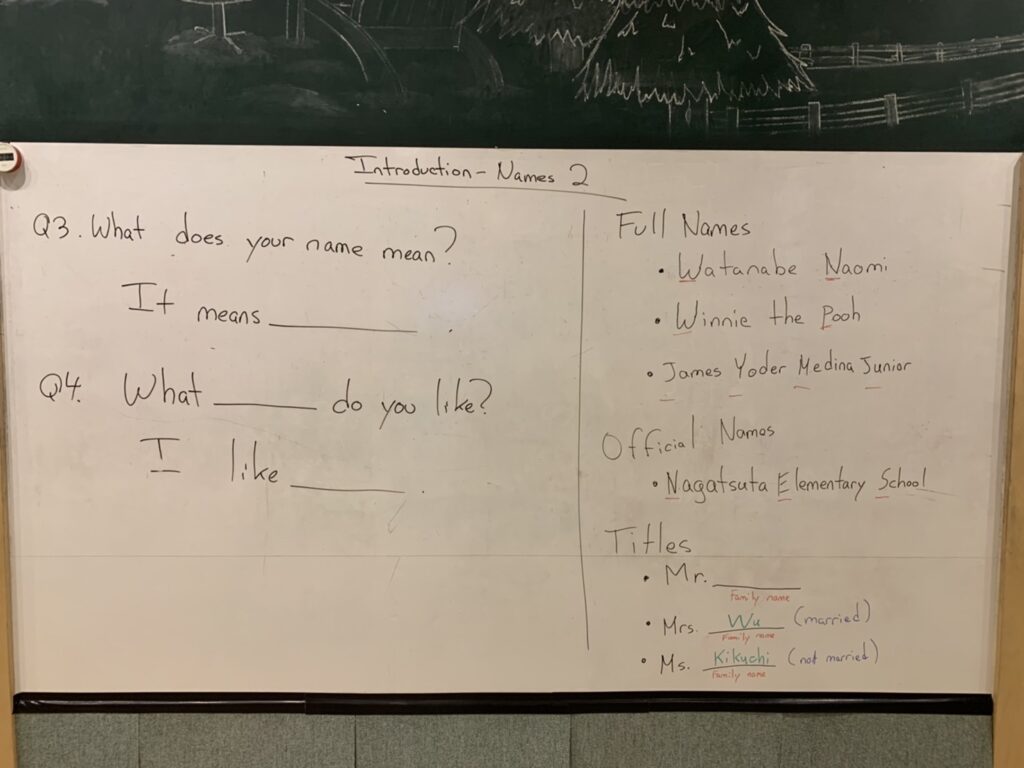 Introduction - Names 2
Q3. What does your name mean?
It means ________.
Q4. What ________ do you like?
I like ________.
Full Names
• Watanabe Naomi
• Winnie the Pooh
• James Yoder Medina Junior
Official Names
• Nagatsuta Elementary School
Titles
• Mr. ________
Family name
• Mrs. Wu (married)
Family name
• Ms. Kikuchi (not married)
Family name